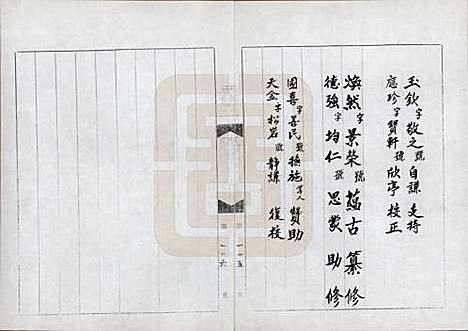 玉欽字敬之號自謙支持
應珍字贊軒號欣亭校正
煥然字景榮號蘊古纂修
德強字均仁號思蒙助修
國喜字善民號樂施
贊助
天金字松岩號靜謙復校
一一五
一一六